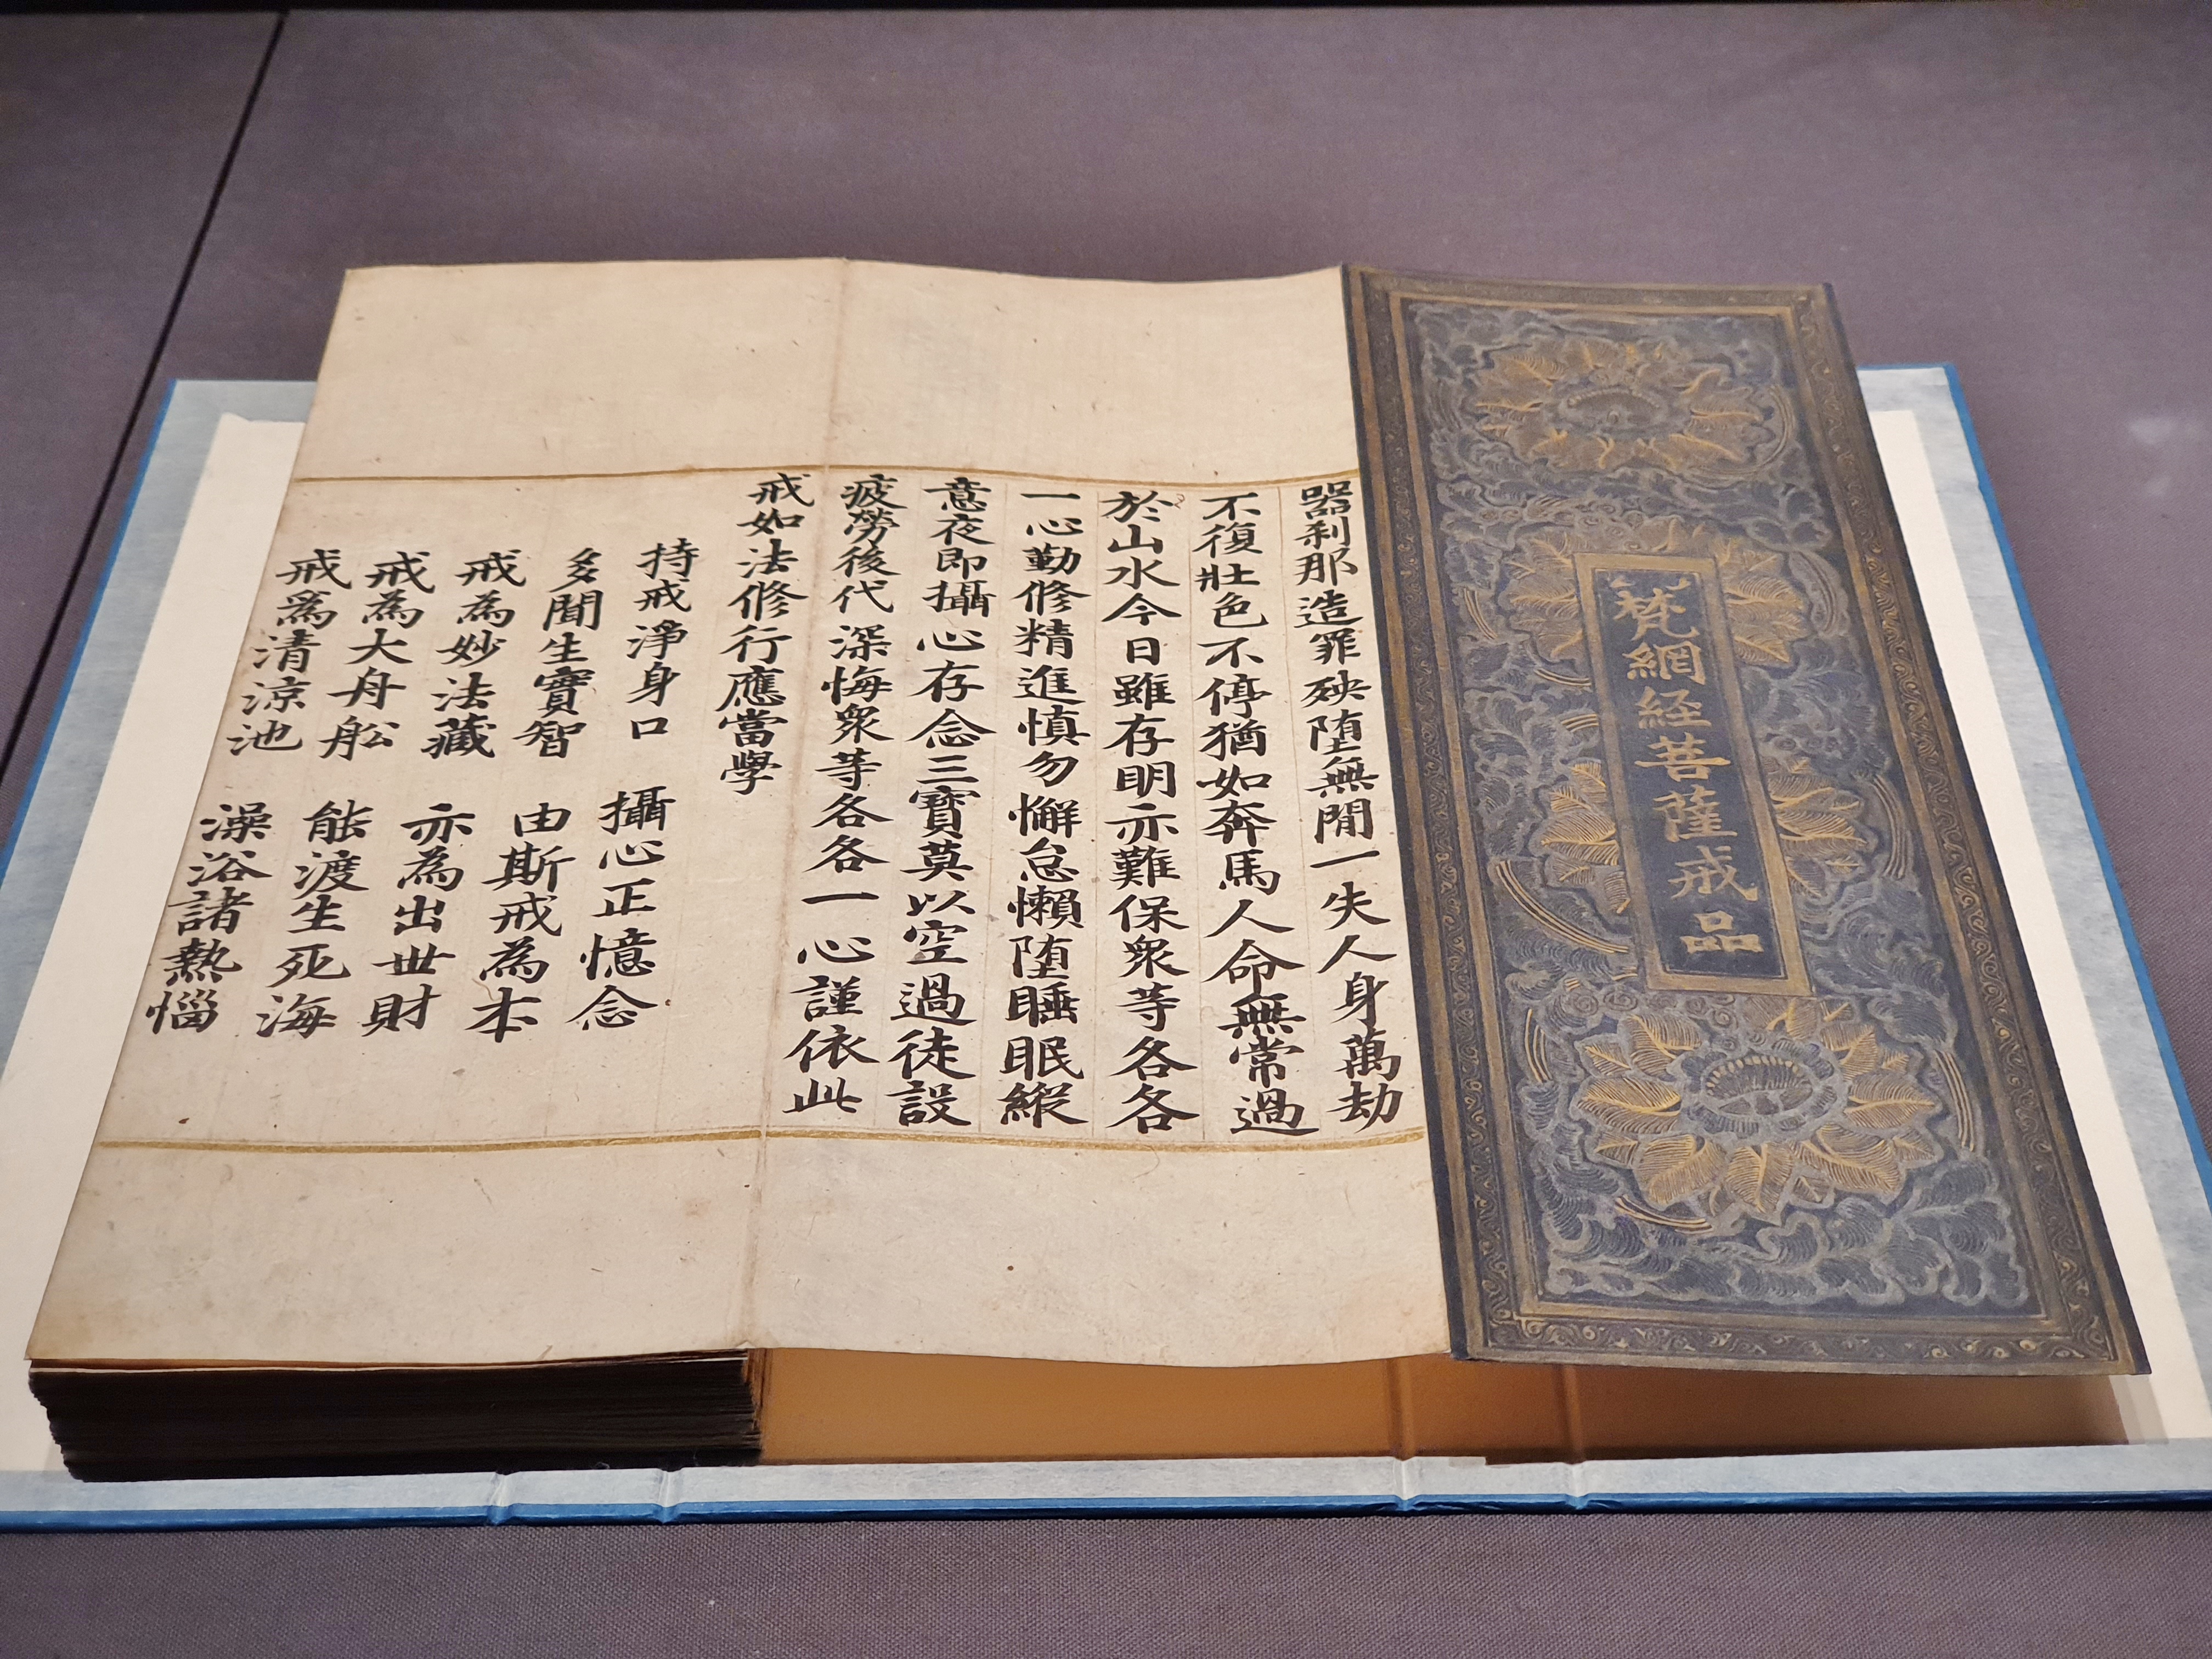 梵網經菩薩戒品
器刹那造罪殃堕無間一失人身萬劫
不復壯色不停猶如奔馬人命無常過
於山水今日雖存明亦難保衆等各各
一心勤修精進慎勿懈怠懶堕睡眠縱
意夜即攝心存念三寶莫以空過徒設
疲勞後代深悔衆等各各一心謹依此
戒如法修行應當學
持戒淨身口 攝心正憶念
多聞生寶智 由斯戒為本
戒為妙法藏 亦為出世財
戒為大舟舩 能渡生死海
戒爲清涼池 澡浴諸熱惱